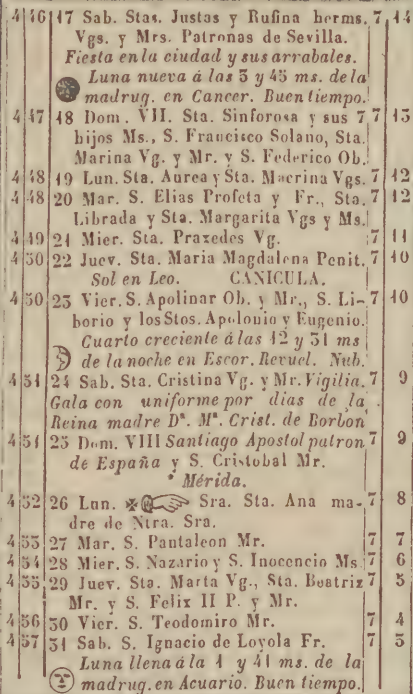 4 46 17 Sab. Stas. Justas y Rufina herms. 7 14
Vgs. y Mrs. Patronas de Sevilla.
Fiesta en la ciudad y sus arrabales.
Luna nueva á las 3 y 45 ms. de la
madrug. en Cancer. Buen tiempo.
4 47 18 Dom. VII. Sta. Sinforosa y sus 7 7 13
hijos Ms., S. Francisco Solano, Sta.
Marina Vg. y Mr. y S. Federico Ob.
4 48 19 Lun. Sta. Aurea y Sta. Macrina Vgs. 7 12
4 48 20 Mar. S. Elias Profeta y Fr., Sta. 7 12
Librada y Sta. Margarita Vgs y Ms.
4 49 21 Mier. Sta. Praxedes Vg. 7 11
4 50 22 Juev. Sta. Maria Magdalena Penit. 7 10
Sol en Leo. CANICULA.
4 50 23 Vier. S. Apolinar Ob. y Mr., S. Li- 7 10
borio y los Stos. Apolonio y Eugenio.
Cuarto creciente á las 12 y 31 ms
de la noche en Escor. Revuel. Nub.
4 51 24 Sab. Sta. Cristina Vg. y Mr. Vigilia. 7 9
Gala con uniforme por dias de la
Reina madre Dª. Mª. Crist. de Borbon
4 51 25 Dom. VIII Santiago Apostol patron 7 9
de España y S. Cristobal Mr.
* Mérida.
4 52 26 Lun. ✠ ☞ Sra. Sta. Ana ma- 7 8
dre de Ntra. Sra.
4 53 27 Mar. S. Pantaleon Mr. 7 7
4 54 28 Mier. S. Nazario y S. Inocencio Ms. 7 6
4 55 29 Juev. Sta. Marta Vg., Sta. Beatriz 7 5
Mr. y S. Felix II P. y Mr.
4 56 30 Vier. S. Teodomiro Mr. 7 4
4 57 31 Sab. S. Ignacio de Loyola Fr. 7 3
Luna llena á la 1 y 41 ms. de la
madrug. en Acuario. Buen tiempo.